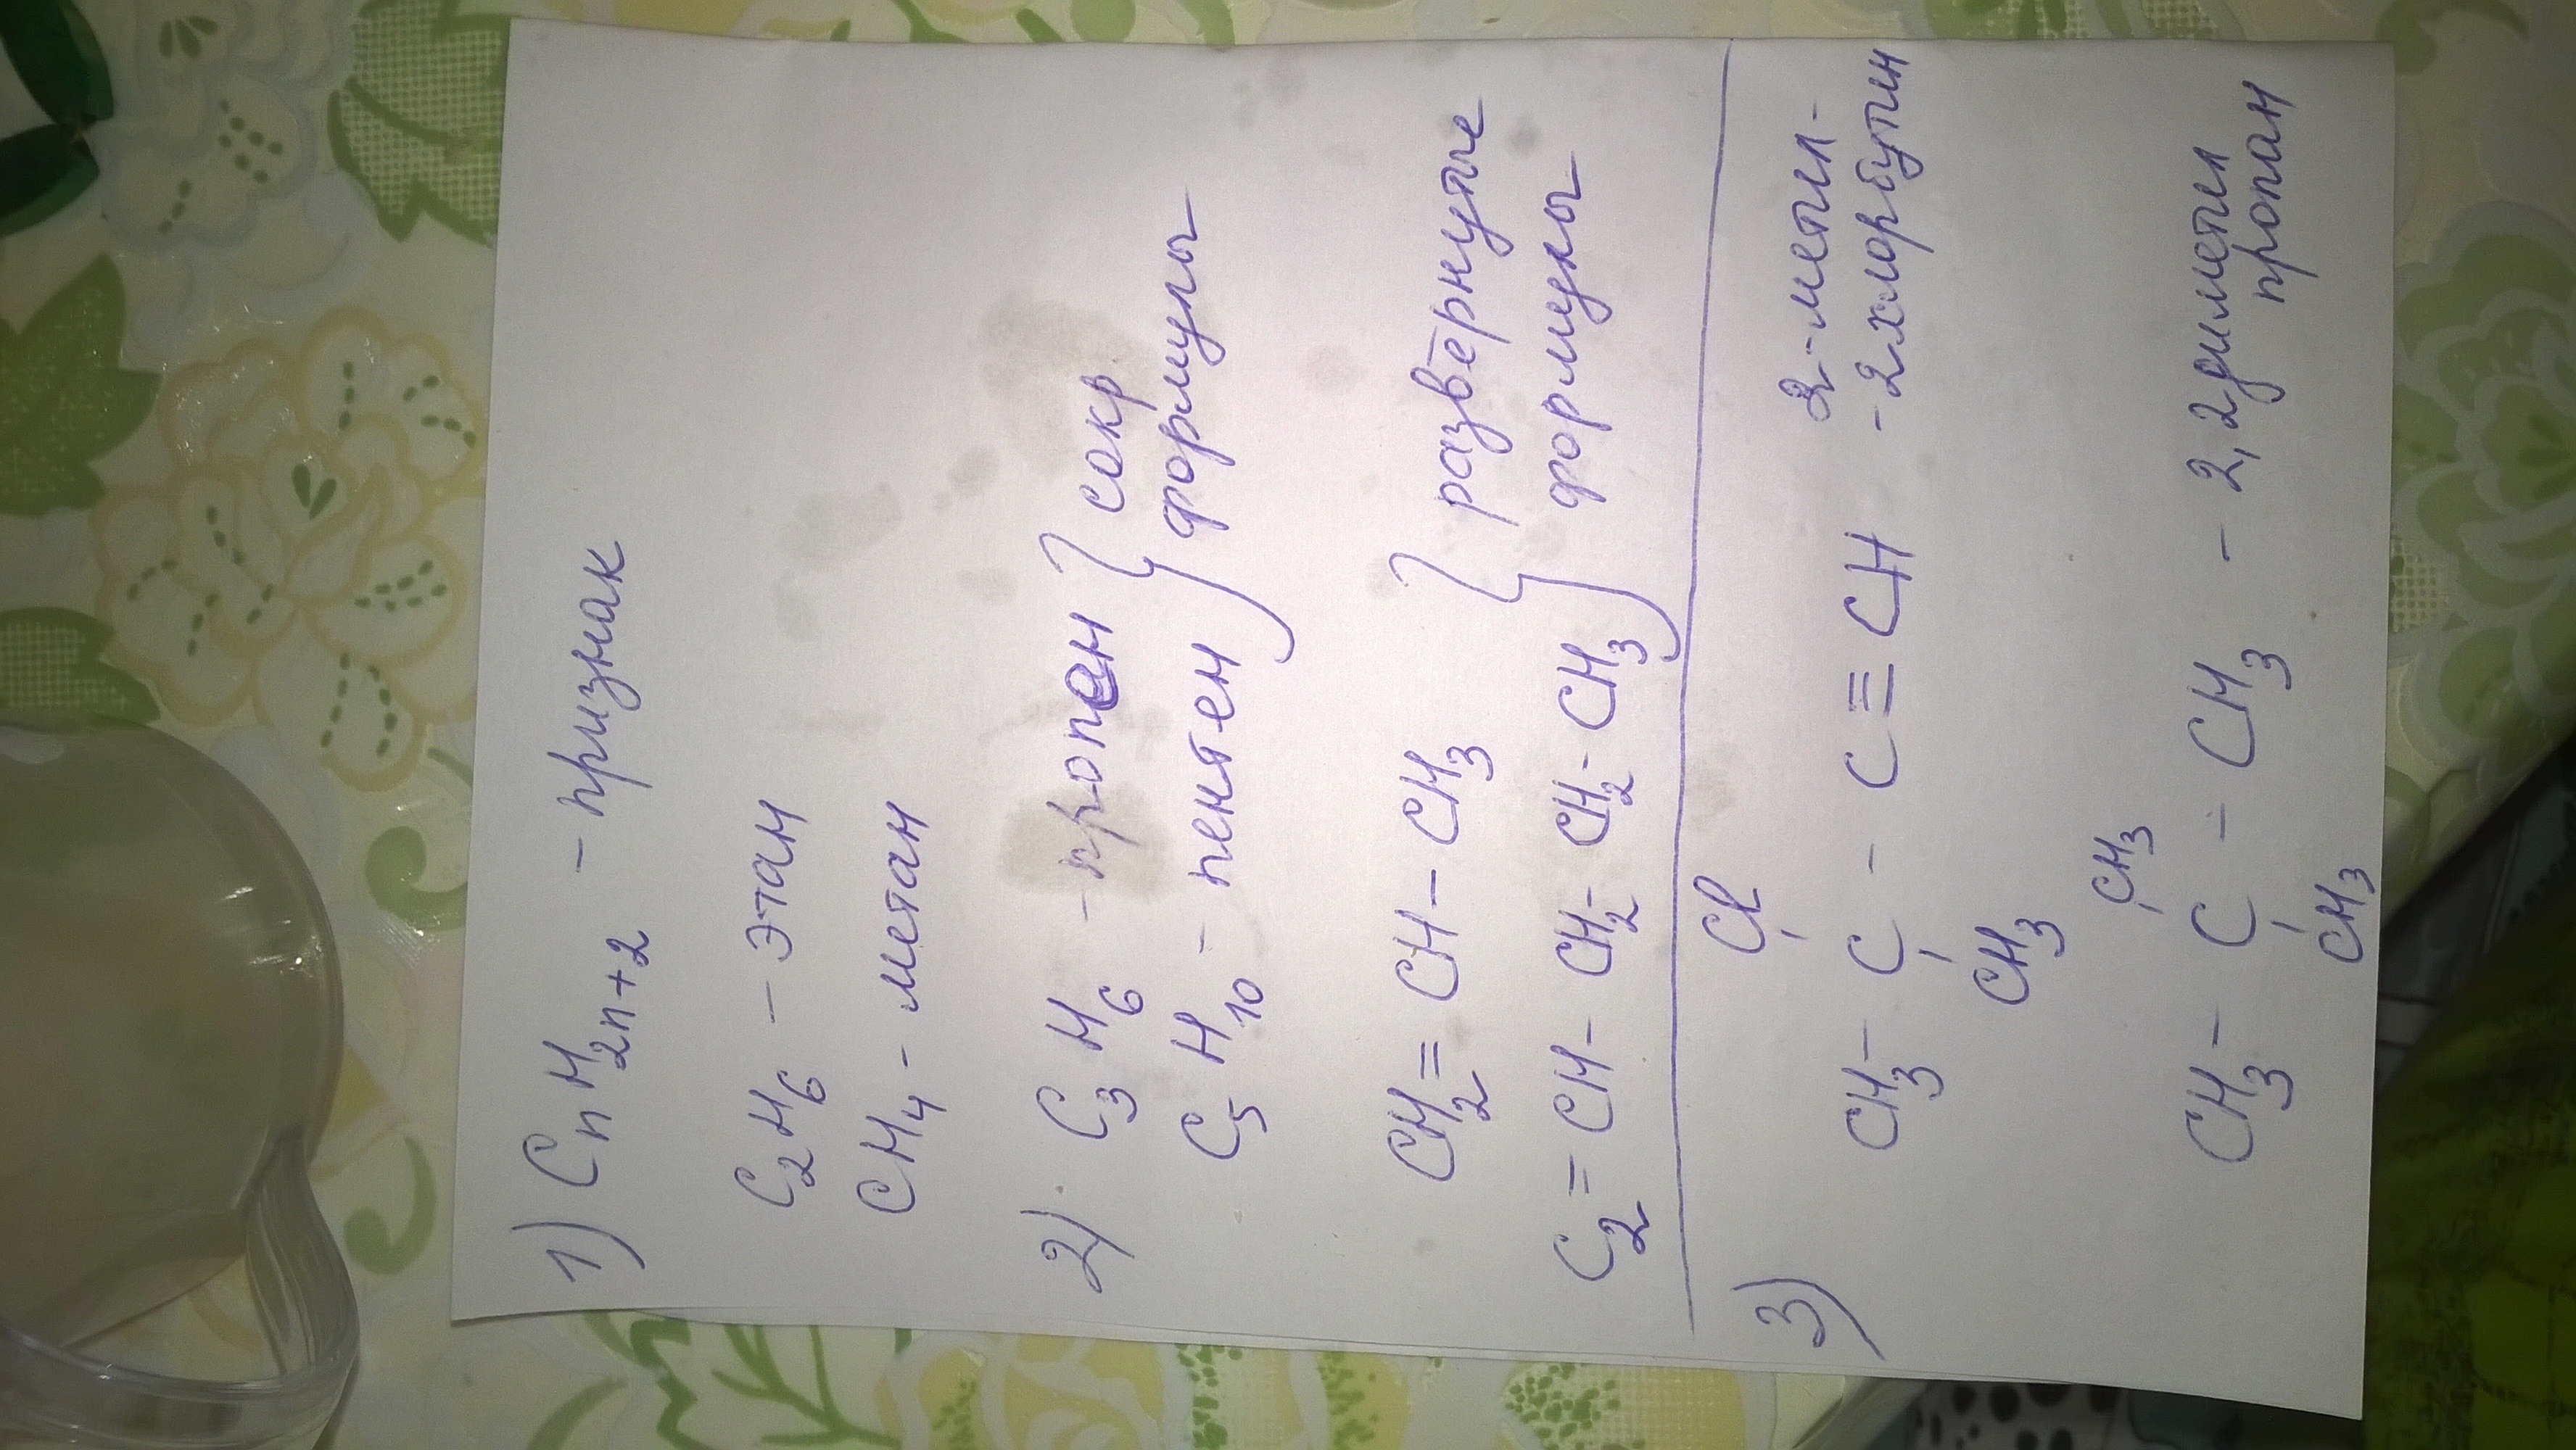 1) CnH2n+2 - признак
C2H6 - этан
CH4 - метан
2) C3H6 - пропен } сокр.
C5H10 - пентен } формулы
CH2=CH-CH3 } развернутые
C2=CH-CH2-CH2-CH3 } формулы
3) Cl
CH3-C-C≡CH 3-метил-
CH3 -2хлорбутин
CH3
CH3-C-CH3 - 2,2диметил
CH3 пропан